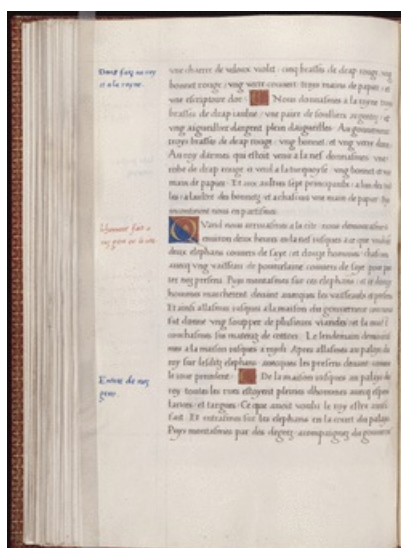 Dons faiz au roy
et a la royne.
une chaiere de veloux violet: cinq brasses de drap rouge, ung
bonnet rouge: ung verre couvert: troys mains de papier: et
une escriptoire doree. Nous donnasmes a la royne troys
brasses de drap iaulne: une paire de soulliers argentez: et
ung aiguillier dargent plein daiguilles. Au gouverneur
troys brasses de drap rouge: ung bonnet: et ung verre dore.
Au roy darmes qui estoit venu a la nef donnasmes une
robe de drap rouge et verd a la turquoyse: ung bonnet et une
main de papier. Et aux aultres sept principaulx: a lun du
a laultre des bonnetz: et a chascun une main de papier
incontinent nous en partismes.
Lhonneur fait a
noz gens en la cite.
Quand nous arrivasmes a la cite: nous demourasmes
environ deux heures en la nef iusques a ce que
deux elephans couvers de saye: et douze hommes chascun
avecq ung vaisseau de pourcelaine couvers de saye pour
tre noz presens. Puys montasmes sur ces elephans: et ces douze
hommes marcherent devant avecques les vaisseaulx et presens
Et ainsi allasmes iusques a la maison du gouverneur
fut donne ung soupper de plusieurs viandes: et la nuict
couchasmes sur materaz de cotton. Le lendemain
mes a la maison iusques a mydi. Apres allasmes au palays du
roy sur lesditz elephans avecques les presens devant comme
le iour precedent. De la maison iusques au palays du
Entree de noz
gens
roy toutes les rues estoyent pleines dhommes avecq espees
lances: et targues. Ce que avoit voulu le roy estre ainsi
fait. Et entrasmes sur les elephans en la court du palays
Puys montasmes par des degrez acompaignez du gouverneur